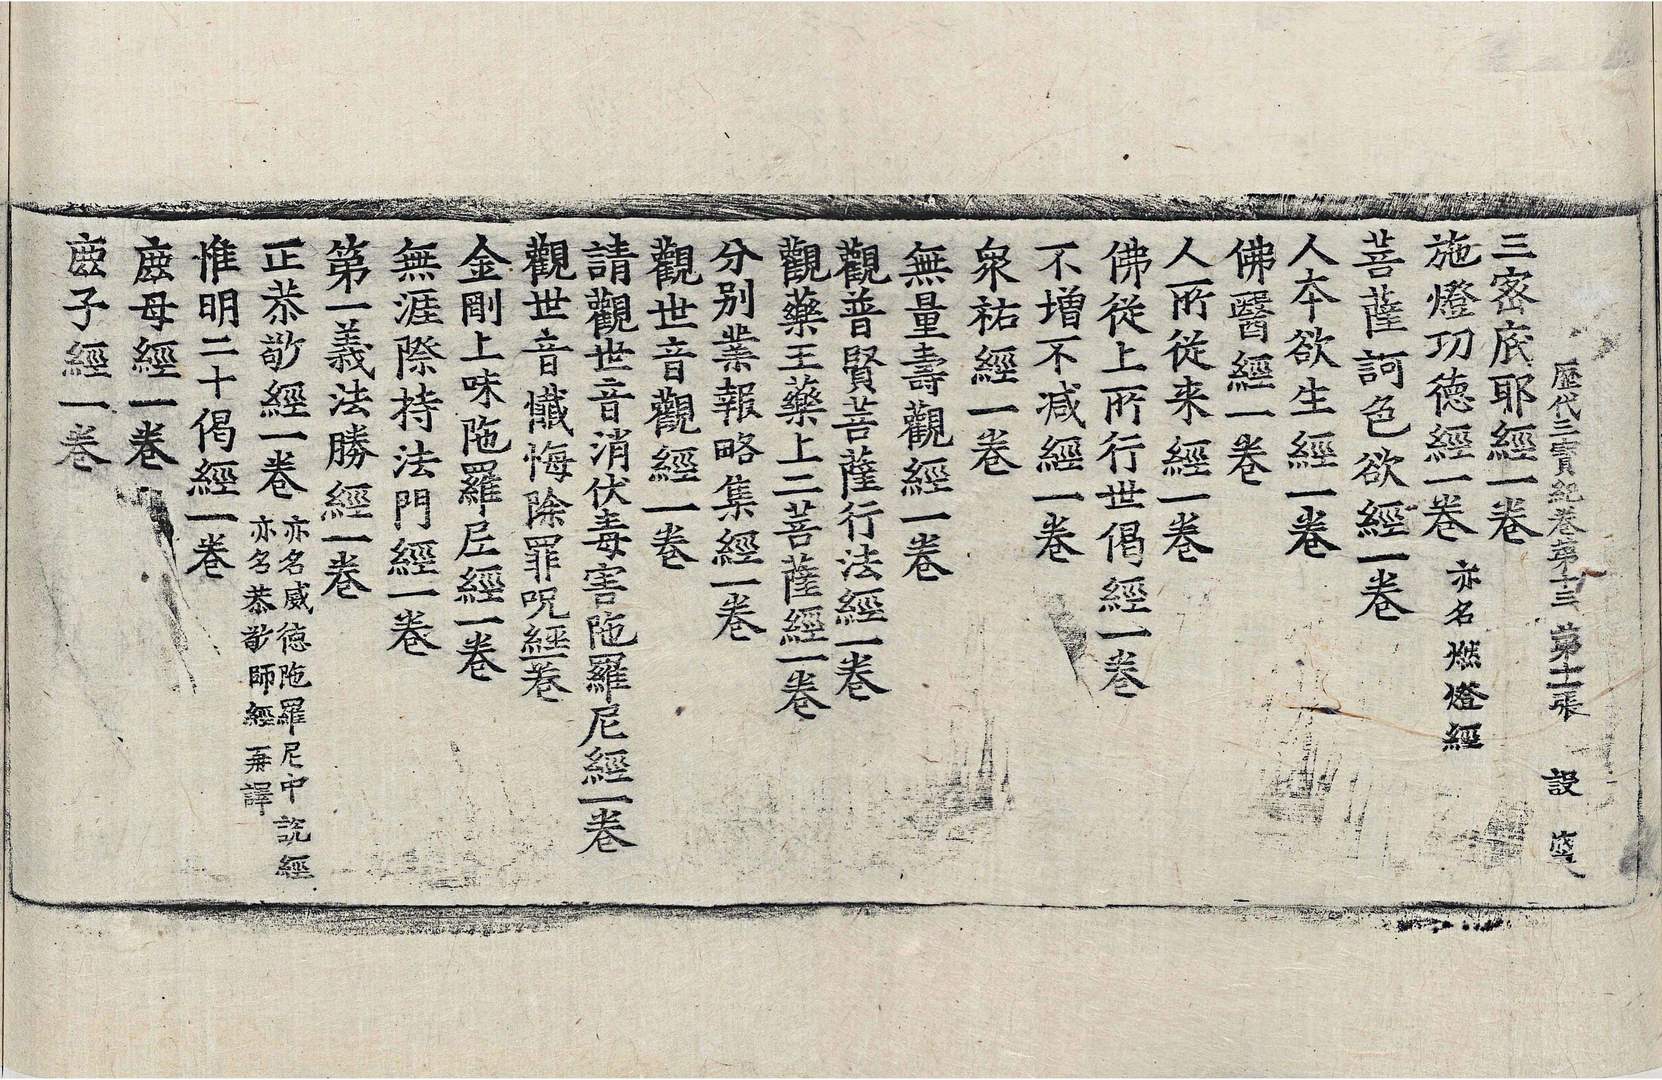 歷代三寳紀卷第十三 第十一張 設
三密底耶經一卷
施燈功德經一卷 亦名燃燈經
菩薩訶色欲經一卷
人本欲生經一卷
佛醫經一卷
人所從来經一卷
佛從上所行世偈經一卷
不增不减經一卷
衆祐經一卷
無量壽觀經一卷
觀普賢菩薩行法經一卷
觀藥王藥上二菩薩經一卷
分別業報略集經一卷
觀世音觀經一卷
請觀世音消伏毒害陁羅尼經一卷
觀世音懺悔除罪呪經一卷
金剛上味陁羅尼經一卷
無涯際持法門經一卷
第一義法勝經一卷
正恭敬經一卷 亦名威德陁羅尼中說經
亦名恭敬師經 再譯
惟明二十偈經一卷
鹿母經一卷
鹿子經一卷